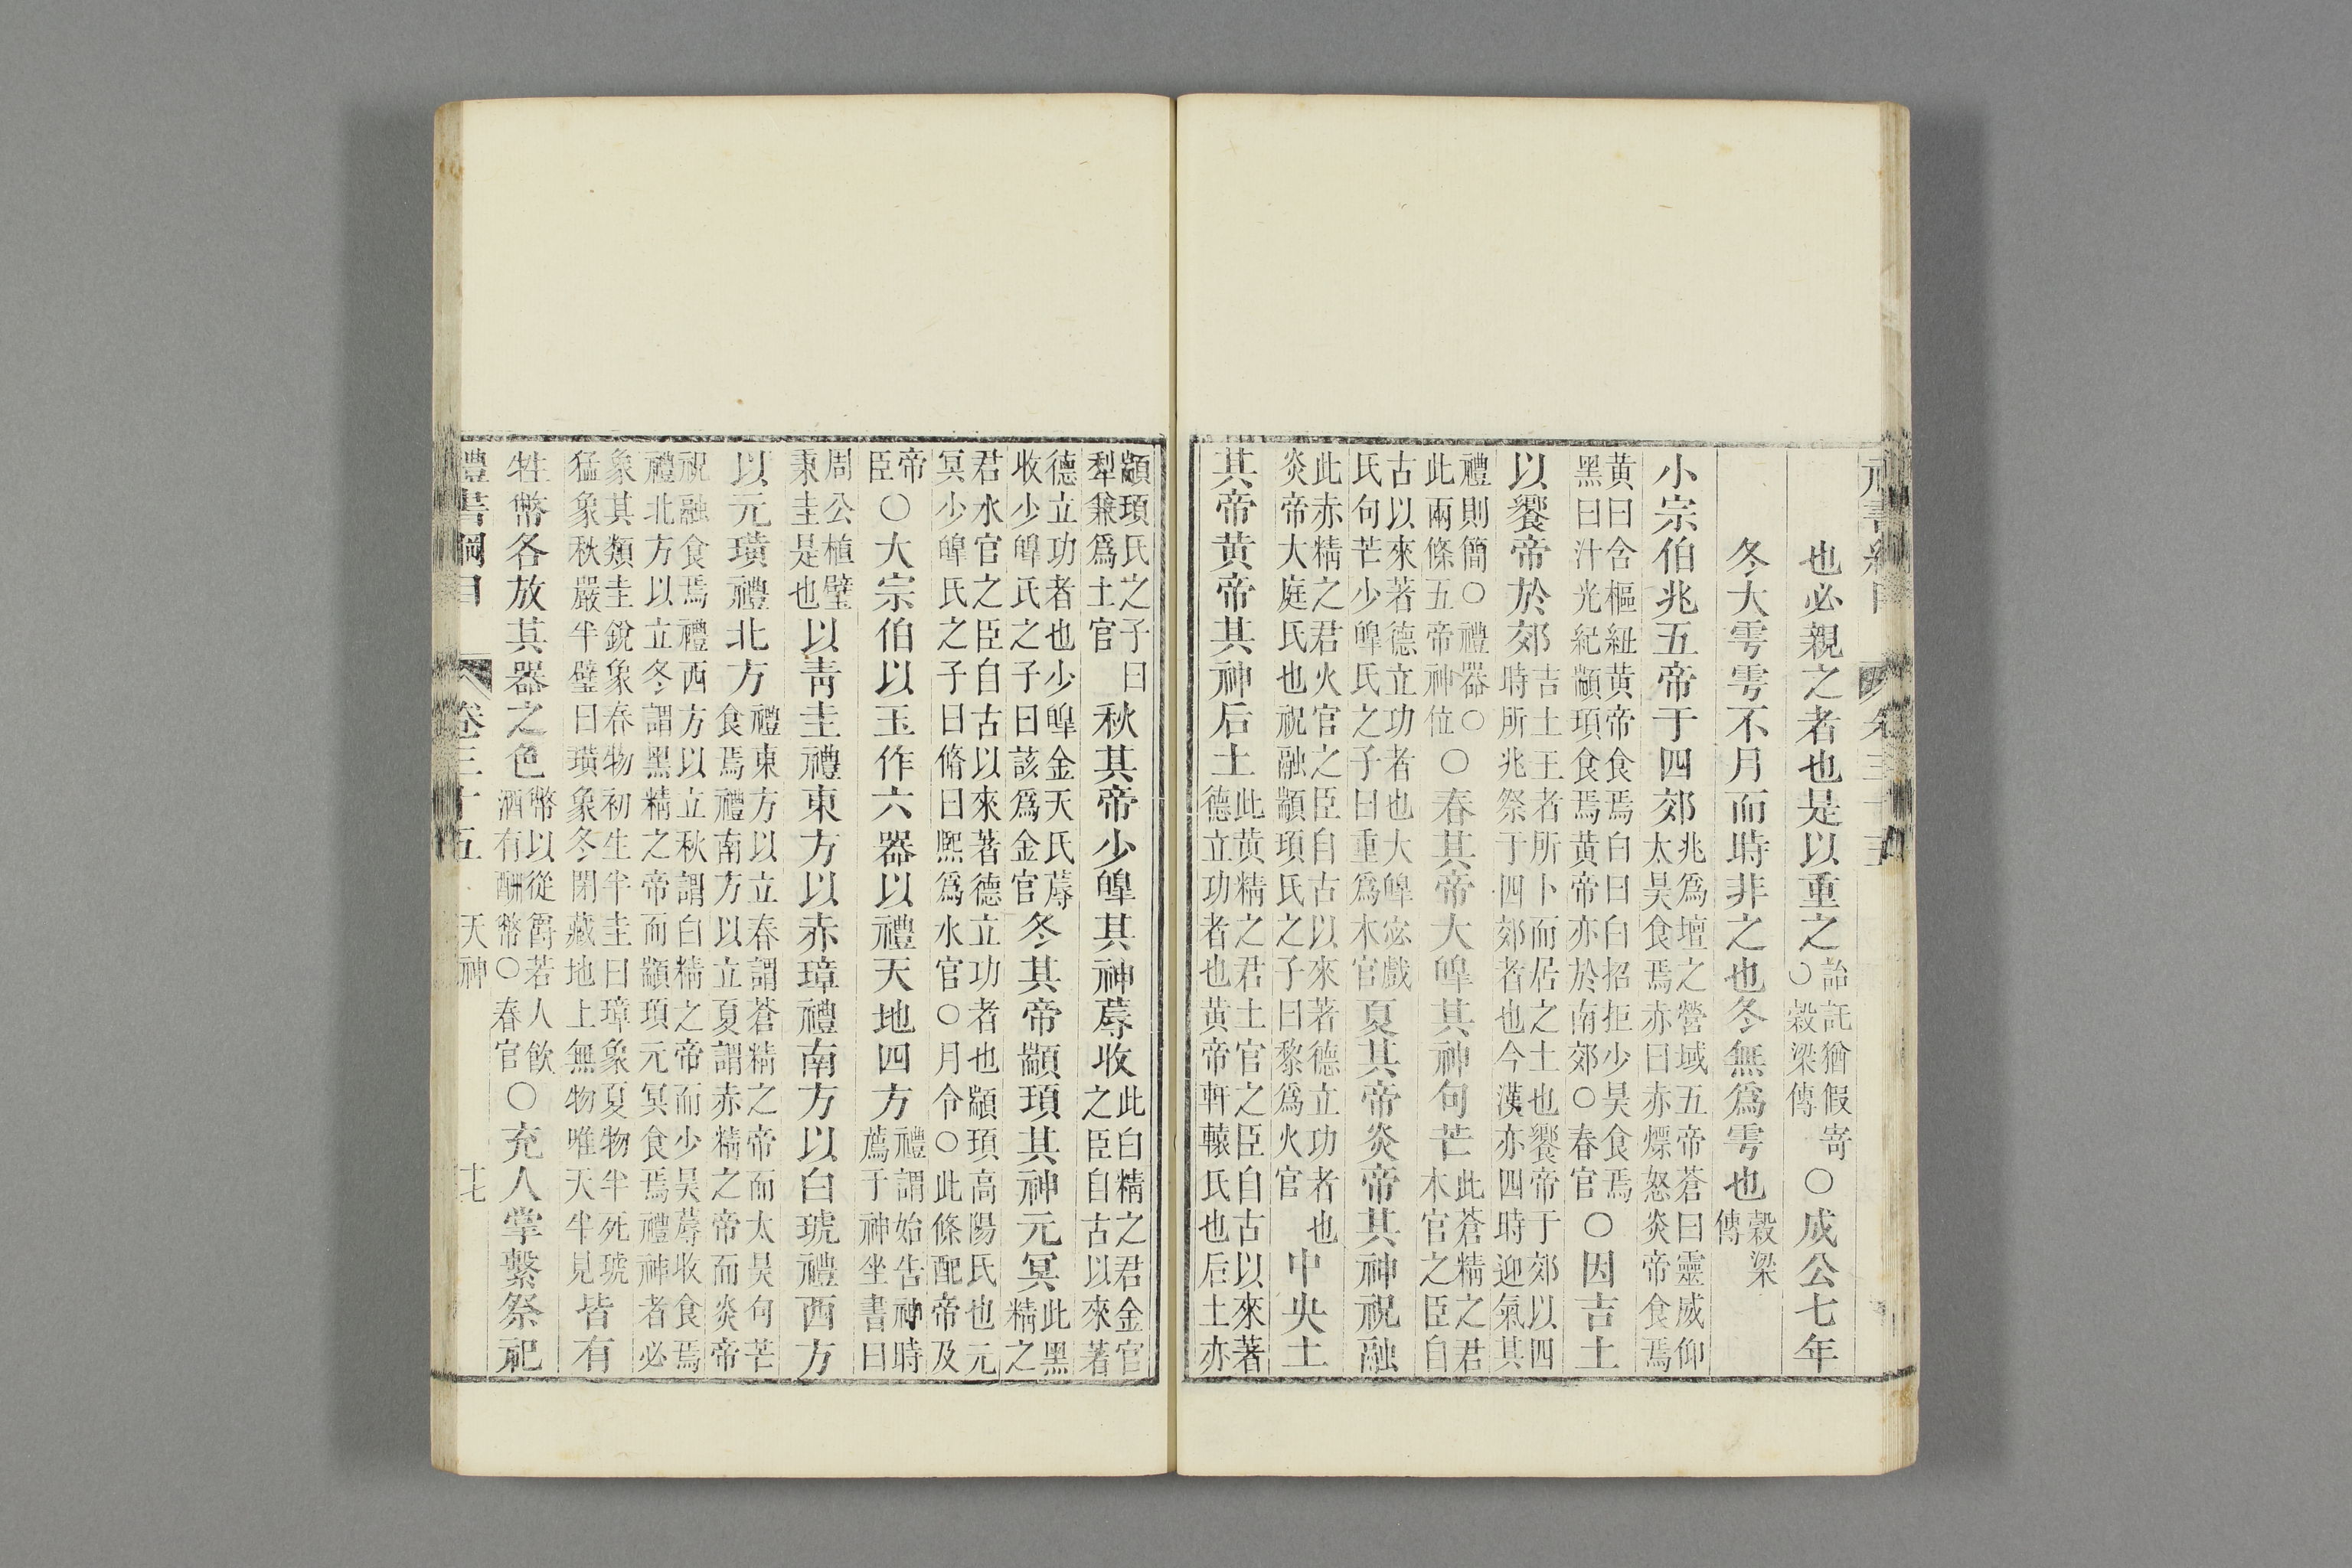 也必親之者也是以重之詒託猶假寄○穀梁傳○成公七年
冬大雩雩不月而時非之也冬無爲雩也穀梁傳
小宗伯兆五帝于四郊兆爲壇之營域五帝蒼曰靈威仰太昊食焉赤曰赤熛怒炎帝食焉
黃曰含樞紐黃帝食焉白曰白招拒少昊食焉黑曰汁光紀顓頊食焉黃帝亦於南郊○春官○因吉土
以饗帝於郊吉土王者所卜而居之土也饗帝于郊以四時所兆祭于四郊者也今漢亦四時迎氣其
禮則簡○禮器○此兩條五帝神位○春其帝大皥其神句芒此蒼精之君木官之臣自
古以來著德立功者也大皥宓戲氏句芒少皥氏之子曰重爲木官夏其帝炎帝其神祝融
此赤精之君火官之臣自古以來著德立功者也炎帝大庭氏也祝融顓頊氏之子曰黎爲火官中央土
其帝黃帝其神后土此黃精之君土官之臣自古以來著德立功者也黃帝軒轅氏也后土亦
顓頊氏之子曰犂兼爲土官秋其帝少皥其神蓐收此白精之君金官之臣自古以來著
德立功者也少皥金天氏蓐收少皥氏之子曰該爲金官冬其帝顓頊其神元冥此黑精之
君水官之臣自古以來著德立功者也顓頊高陽氏也元冥少皥氏之子曰脩曰熙爲水官○月令○此條配帝及
帝臣○大宗伯以玉作六器以禮天地四方禮謂始告神時薦于神坐書曰
周公植璧秉圭是也以靑圭禮東方以赤璋禮南方以白琥禮西方
以元璜禮北方禮東方以立春謂蒼精之帝而太昊句芒食焉禮南方以立夏謂赤精之帝而炎帝
祝融食焉禮西方以立秋謂白精之帝而少昊蓐收食焉禮北方以立冬謂黑精之帝而顓頊元冥食焉禮神者必
象其類圭銳象春物初生半圭曰璋象夏物半死琥猛象秋嚴半璧曰璜象冬閉藏地上無物唯天半見皆有
牲幣各放其器之色幣以從爵若人飮酒有酬幣○春官○充人掌繫祭祀
禮書綱目 卷三十五 天神 十七